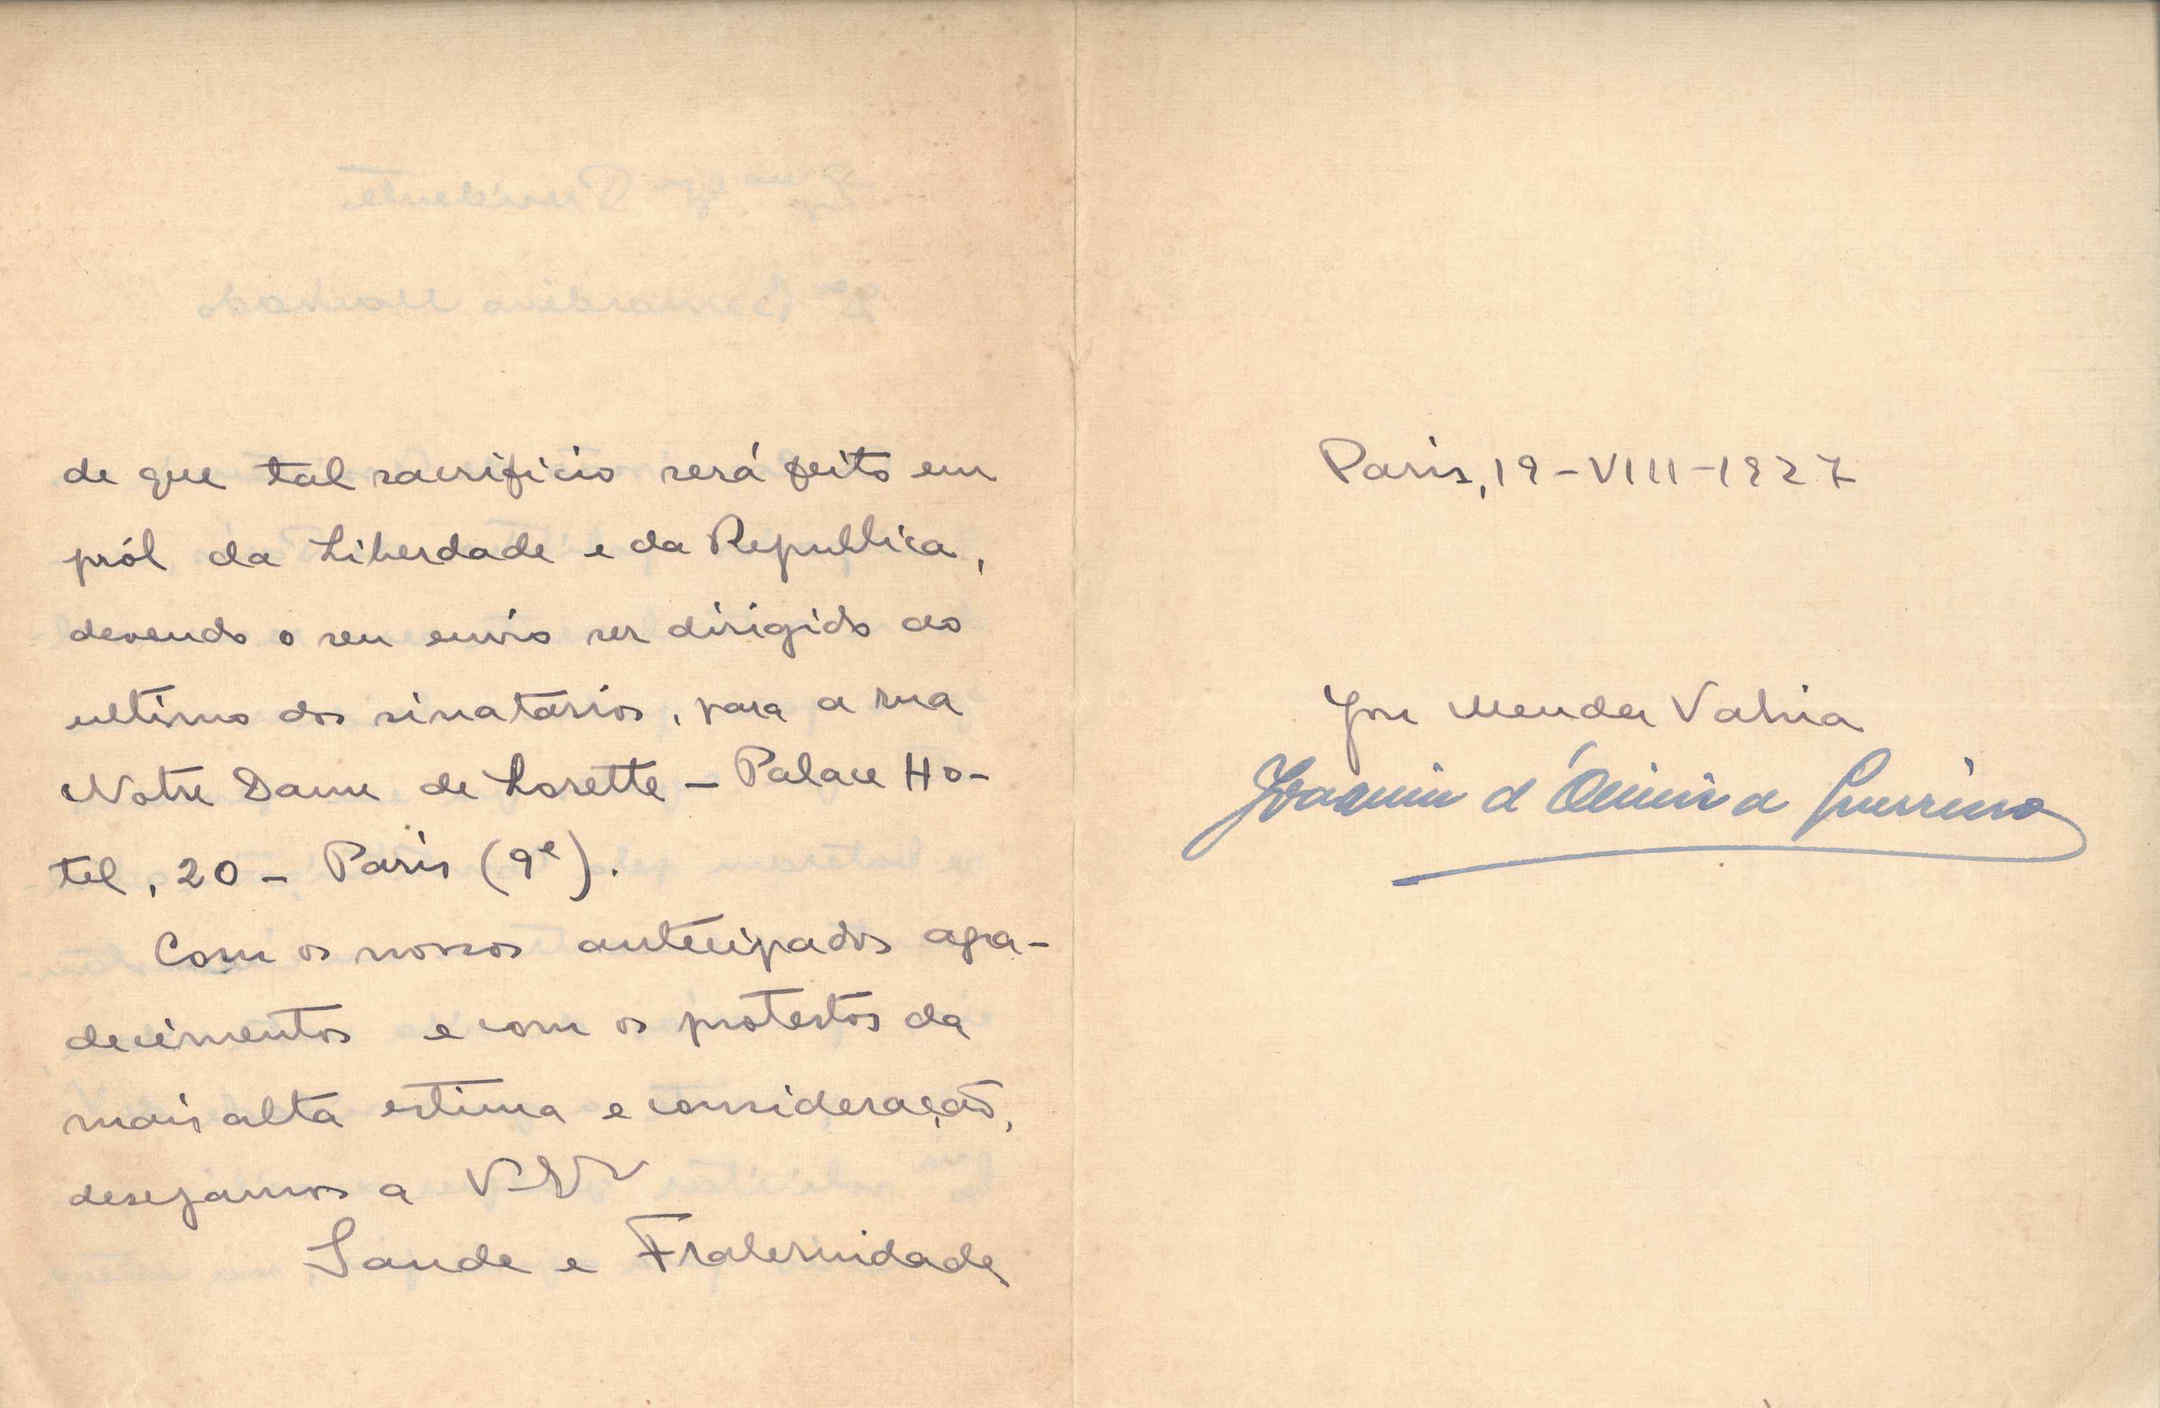 de que tal sacrificio será feito em
pról da Liberdade e da Republica,
devendo o seu envio ser dirigido ao
ultimo dos sinatarios, para a rua
Notre Dame de Lorette – Palace Ho-
tel, 20 – Paris (9e).
Com os nossos antecipados agra-
decimentos e com os protestos da
mais alta estima e consideração,
desejamos a
Saude e Fraternidade
Paris, 19-VIII-1927
José Mendes Vahia
Joaquim d'Oliveira Guerreiro
Presidente
Bernardino Machado